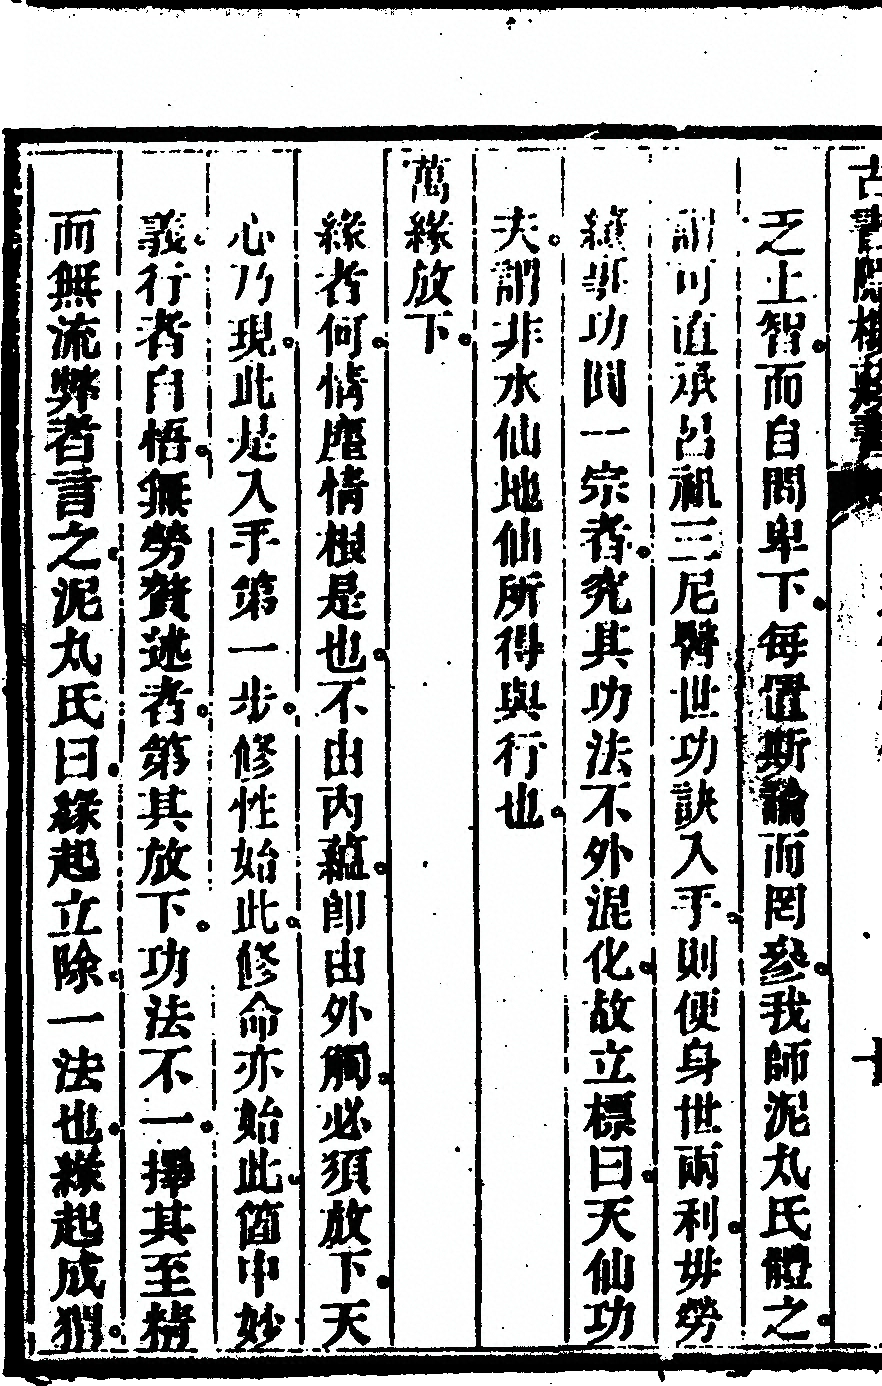 古書隱樓藏書
之上智而自問卑下每置斯論而罔參我師泥丸氏體之
謂可直承呂祖三尼醫世功訣入手則便身世兩利毋勞
纏事功圓一宗者究其功法不外混化故立標曰天仙功
夫謂非水仙地仙所得與行也
萬緣放下
緣者何情塵情根是也不由內蘊即由外觸必須放下天
心乃現此是入手第一步修性始此修命亦始此箇中妙
義行者自悟無勞贅述者第其放下功法不一擇其至精
而無流弊者言之泥丸氏曰緣起立除一法也緣起成猬